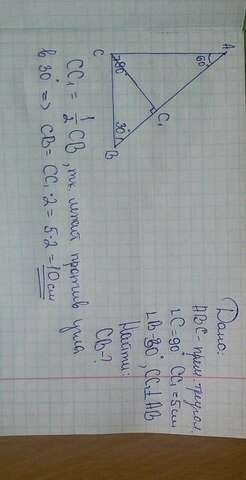 Дано:
ABC - прям. треугол.
∠C=90° CC₁=5см
∠B=30°, CC₁⊥AB
Найти:
CB-?
A
60°
C
90°
C₁
30°
B
CC₁ = 1/2 CB, т.к. лежит против угла
в 30° => CB = CC₁·2 = 5·2 = 10 см